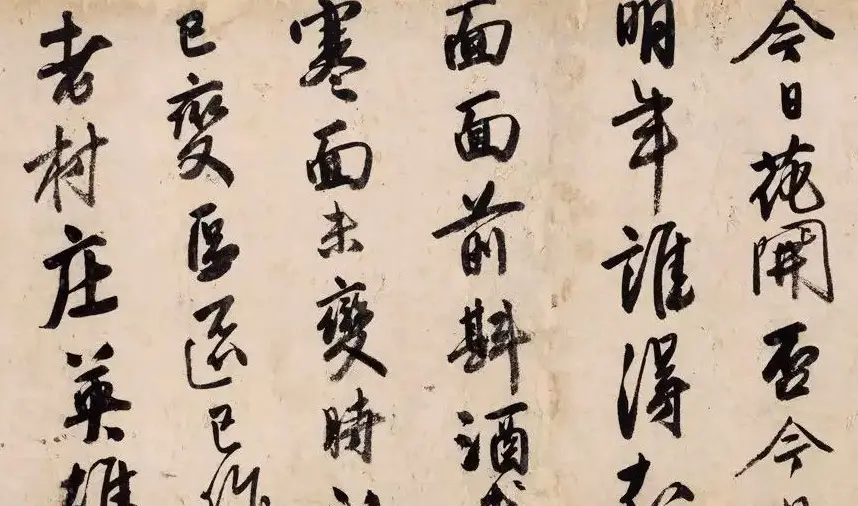 今日花開否今日
明年誰得知
面面前斟酒
寒面未變時
已變還已作
老村庄英雄